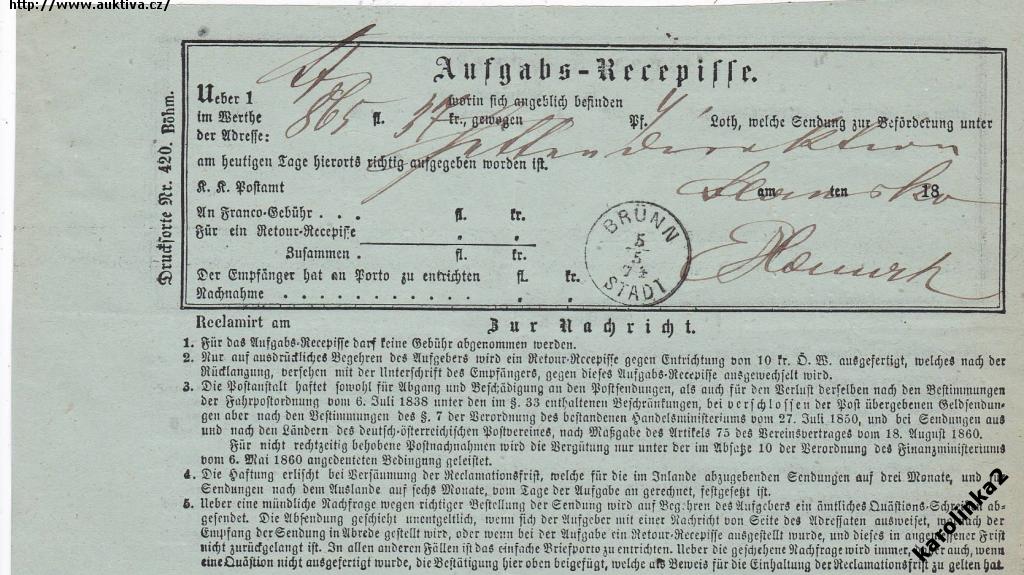 http://www.auktiva.cz/
Drucksorte Nr. 420. Böhm.
Aufgabs-Recepisse.
Ueber 1 worin sich angeblich befinden
im Werthe 865 fl. 37 kr., gewogen Pf. Loth, welche Sendung zur Beförderung unter
der Adresse:
am heutigen Tage hierorts richtig aufgegeben worden ist.
K. K. Postamt am ten 18
An Franco-Gebühr . . . fl. kr.
Für ein Retour-Recepisse . .
Zusammen . fl. kr.
Der Empfänger hat an Porto zu entrichten fl. kr.
Nachnahme . . . . . . . . . . . .
BRÜNN
5
5
74
STADT
Reclamirt am Zur Nachricht.
1. Für das Aufgabs-Recepisse darf keine Gebühr abgenommen werden.
2. Nur auf ausdrückliches Begehren des Aufgebers wird ein Retour-Recepisse gegen Entrichtung von 10 kr. Ö. W. ausgefertigt, welches nach der
Rücklangung, versehen mit der Unterschrift des Empfängers, gegen dieses Aufgabs-Recepisse ausgewechselt wird.
3. Die Postanstalt haftet sowohl für Abgang und Beschädigung an den Postsendungen, als auch für den Verlust derselben nach den Bestimmungen
der Fahrpostordnung vom 6. Juli 1838 unter den im §. 33 enthaltenen Beschränkungen, bei verschlossen der Post übergebenen Geldsendun-
gen aber nach den Bestimmungen des §. 7 der Verordnung des bestandenen Handelsministeriums vom 27. Juli 1850, und bei Sendungen aus
und nach den Ländern des deutsch-österreichischen Postvereines, nach Maßgabe des Artikels 75 des Vereinsvertrages vom 18. August 1860.
Für nicht rechtzeitig behobene Postnachnahmen wird die Vergütung nur unter der im Absatze 10 der Verordnung des Finanzministeriums
vom 6. Mai 1860 angedeuteten Bedingung geleistet.
4. Die Haftung erlischt bei Versäumung der Reclamationsfrist, welche für die im Inlande abzugebenden Sendungen auf drei Monate, und
Sendungen nach dem Auslande auf sechs Monate, vom Tage der Aufgabe an gerechnet, festgesetzt ist.
5. Ueber eine mündliche Nachfrage wegen richtiger Bestellung der Sendung wird auf Begehren des Aufgebers ein ämtliches Quästions-Schreiben ab-
gesendet. Die Absendung geschieht unentgeltlich, wenn sich der Aufgeber mit einer Nachricht von Seite des Adressaten ausweiset, nach der
Empfang der Sendung in Abrede gestellt wird, oder wenn bei der Aufgabe ein Retour-Recepisse ausgestellt wurde, und dieses in angemessener Frist
nicht zurückgelangt ist. In allen anderen Fällen ist das einfache Briefporto zu entrichten. Ueber die geschehene Nachfrage wird immer, auch, wenn
eine Quästion nicht ausgefertigt wurde, die Bestätigung hier oben beigefügt, welche als Beweis für die Einhaltung der Reclamationsfrist zu gelten hat.
karolinka2